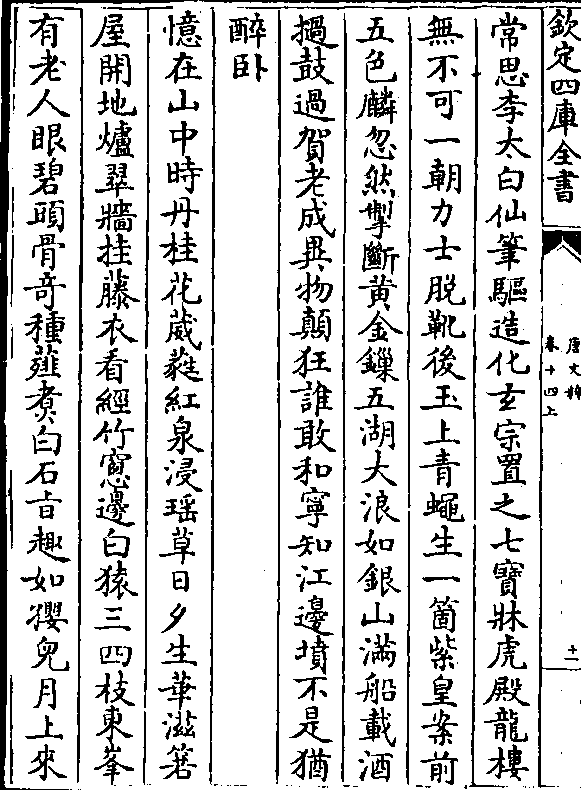 欽定四庫全書
唐文粹
卷十四上
十一
常思李太白仙筆驅造化玄宗置之七寶牀虎殿龍樓
無不可一朝力士脱靴後玉上青蠅生一箇紫皇案前
五色麟忽然掣斷黄金鏁五湖大浪如銀山滿船載酒
撾鼓過賀老成異物顛狂誰敢和寧知江邊墳不是猶
醉卧
憶在山中時丹桂花葳蕤紅泉浸瑶草日夕生華滋箬
屋開地爐翠牆挂藤衣看經竹窻邊白猿三四枝東峯
有老人眼碧頭骨奇種薤煮白石旨趣如孾兒月上來